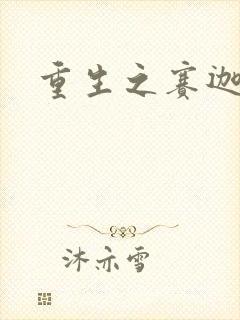 重生之赛迦
沐亦雪